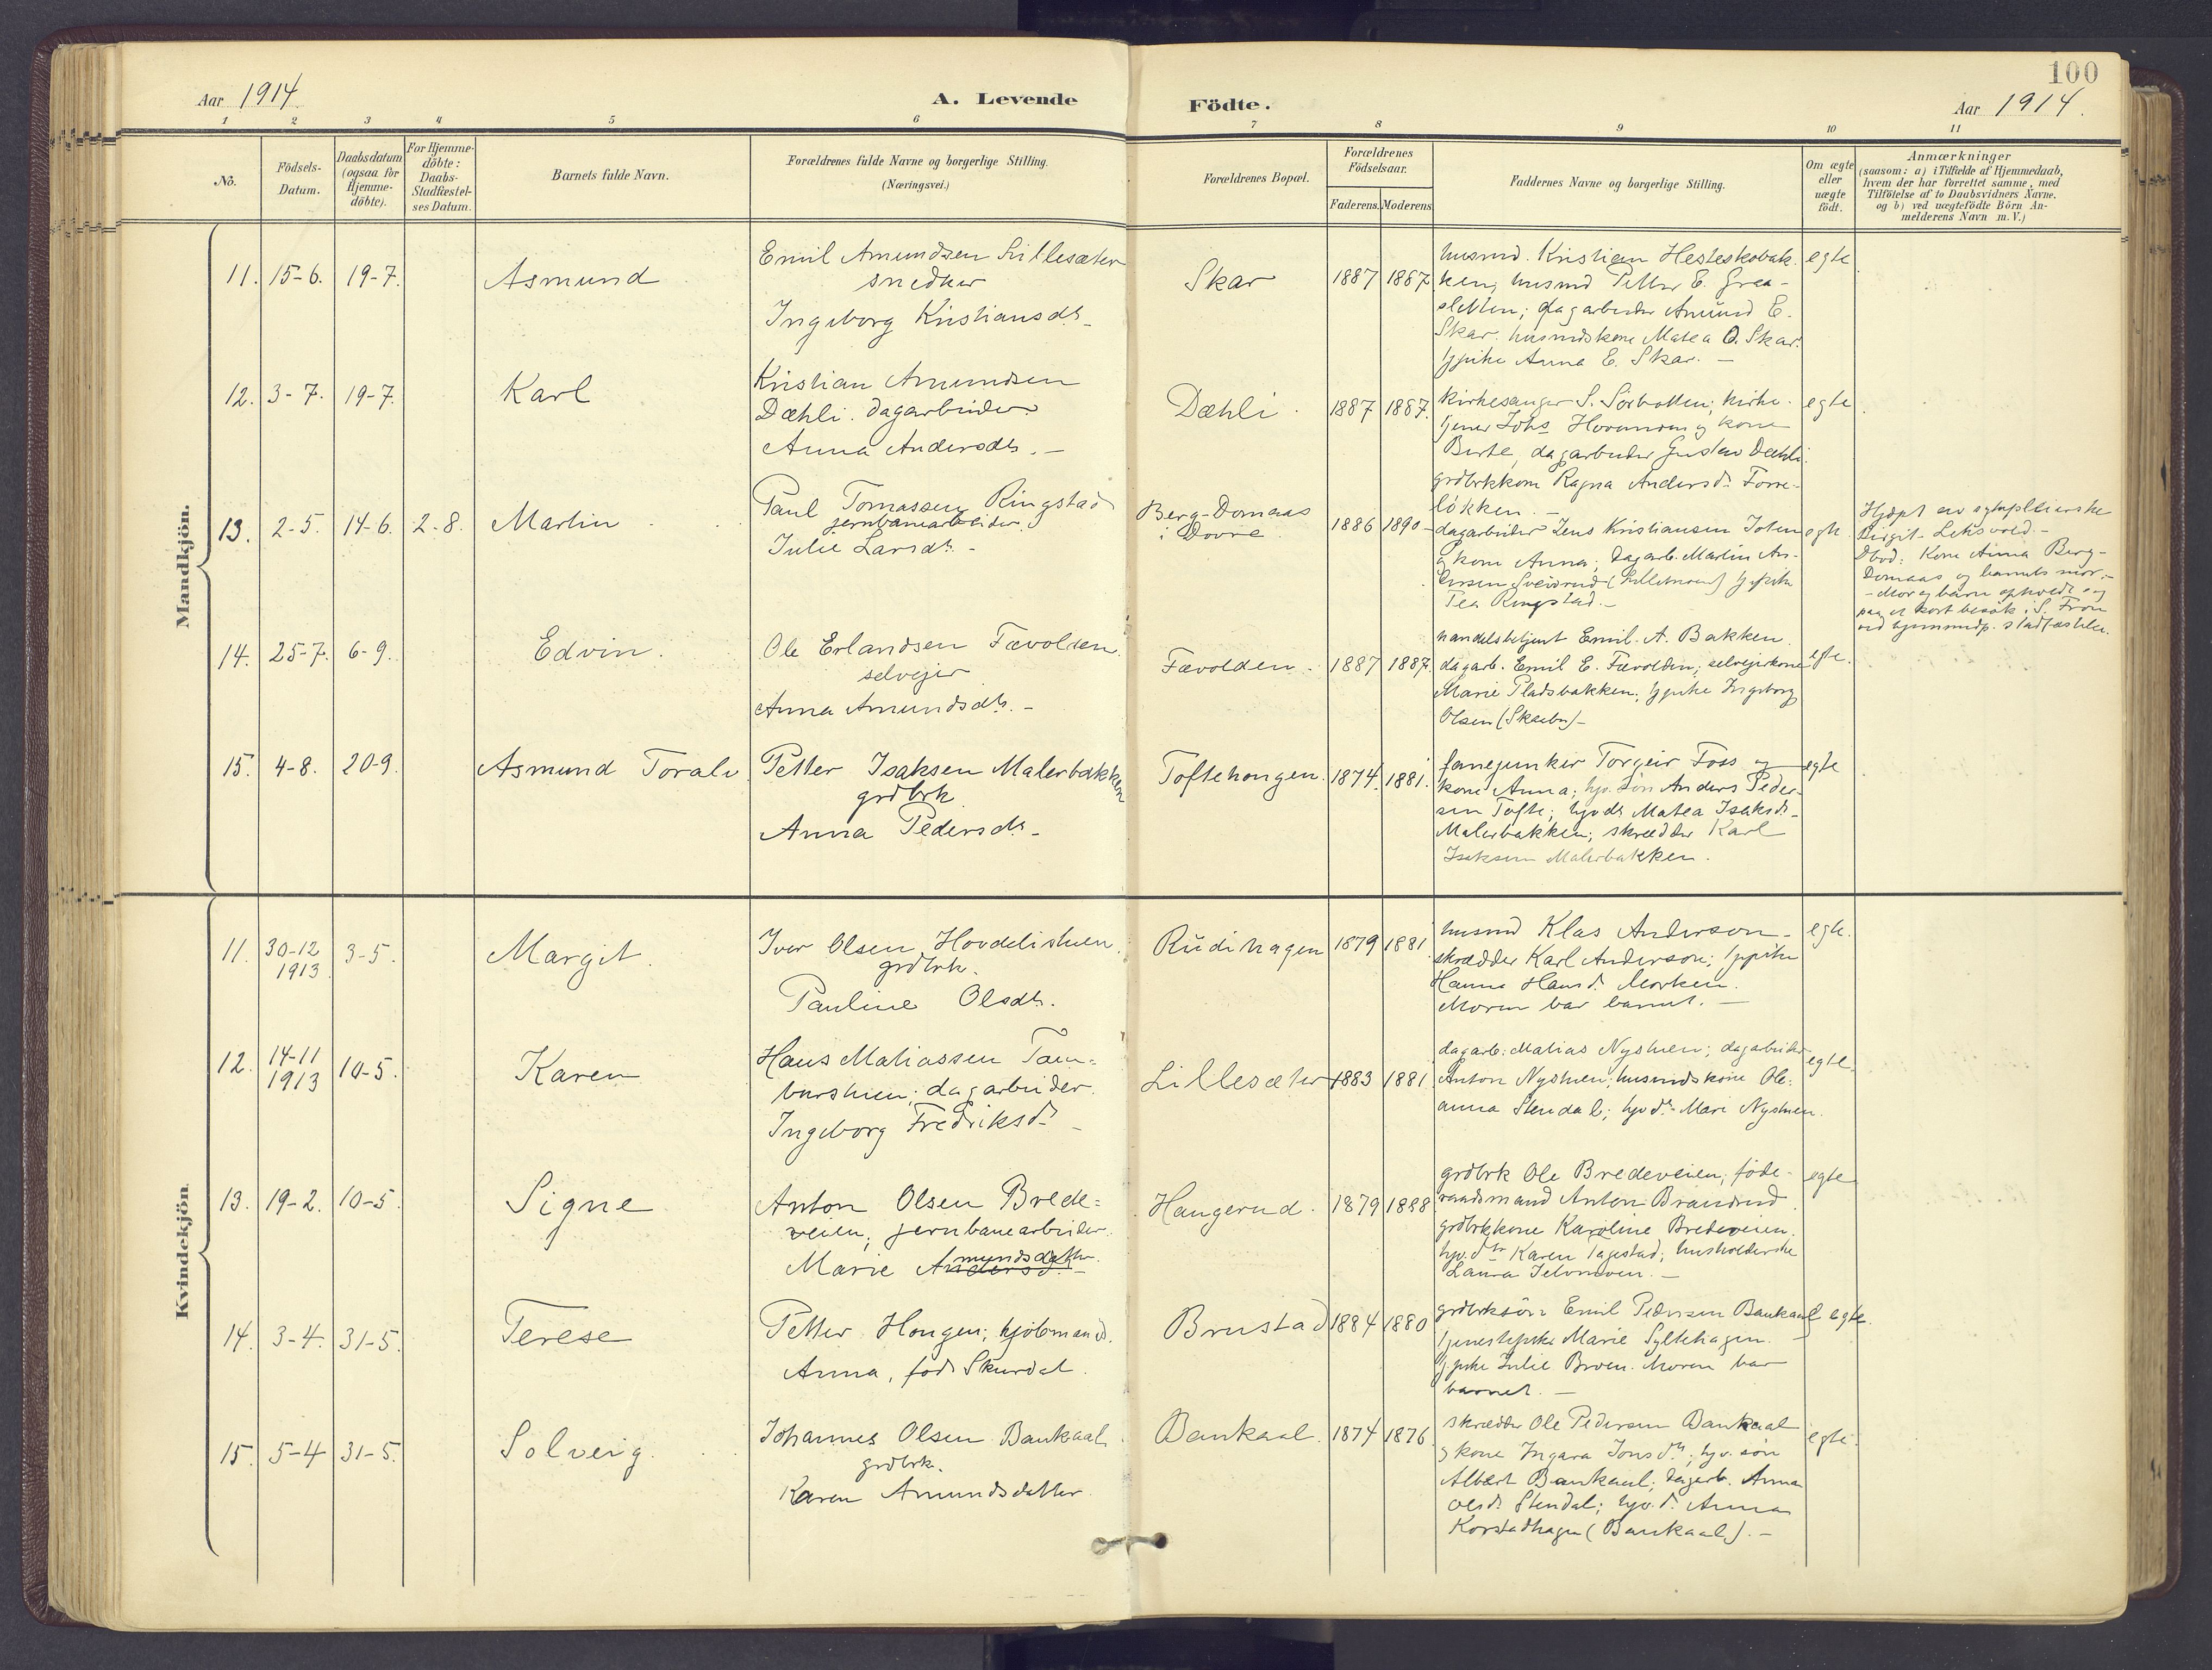 100
Aar 1914
A. Levende Födte.
Aar 1914.
1 2 3 4 5 6 7 8 9 10 11
No.
Födsels-
Datum.
Daabsdatum
(ogsaa for
Hjemme-
döbte).
For Hjemme-
döbte:
Daabs-
Stadfæstel-
ses Datum.
Barnets fulde Navn.
Forældrenes fulde Navne og borgerlige Stilling.
(Næringsvei.)
Forældrenes Bopæl.
Forældrenes
Födselsaar.
Faderens. Moderens.
Faddernes Navne og borgerlige Stilling.
Om ægte
eller
uægte
födt.
Anmærkninger
(saasom: a) i Tilfælde af Hjemmedaab,
hvem der har forrettet samme, med
Tilföielse af to Daabsvidners Navne.
og b) ved uægtefödte Börn An-
melderens Navn m. V.)
Mandkjön.
11. 15-6. 19-7. Asmund
Emil Amundsen Lillesæter
snedker
Ingeborg Kristiansdt.
Skar 1887 1887
husmd. Kristian Hesteskobak-
ken; husmd Petter E. Graa-
sletten; dagarbeider Amund E.
Skar. husmdskone Matea O. Skar.
pike Anna E. Skar. -
egte
12. 3-7. 19-7. Karl
Kristian Amundsen
Dæhli. dagarbeider
Anna Andersdt. -
Dæhli. 1887 1887.
kirkesanger S. Sörbotten; kirke-
tjener Johs Hovemoen og kone
Berte, dagarbeider Gustav Dæhli.
grdbrkkone Ragna Andersd. Forre-
lökken. -
egte
13. 2-5. 14-6. 2-8. Martin
Paul Tomassen Ringstad
jernbanearbeider.
Julie Larsdt. -
Berg-Domaas
i Dovre.
1886 1890
dagarbeider Jens Kristiansen Joten
og kone Anna; dagarb. Martin An-
Tea Ringstad. -
egte
Birgit
Dbvd: Kone Anna Berg-
Domaas og barnets mor. -
paa et kort besök i S. Fron
14. 25-7. 6-9. Edvin.
Ole Erlandsen Fævolden.
selveier
Anna Amundsdt. -
Fævolden. 1887 1887.
handelsbetjent Emil A. Bakken.
dagarb. Emil E. Fævolden; selveierkone
Marie Pladsbakken; pike Ingeborg
Olsen
egte.
15. 4-8. 20-9. Asmund Toralv
Petter Isaksen Malerbakken
grdbrk
Anna Pedersdt. -
Toftehongen. 1874. 1881.
fanejunker Torgeir Foss og
kone Anna; hjv. sön Anders Peder-
sen Tofte; hjv dt. Matea Isaksdt. -
Malerbakken; skrædder Karl
Isaksen Malerbakken.
egte
Kvindekjön
11. 30-12
1913. 3-5. Margit.
Iver Olsen Hovdelistuen
grdbrk.
Pauline Olsdt.
Rudihagen 1879 1881
husmd Klas Anderson -
skrædder Karl Anderson; pike
Hanna Hansd. Morken.
Moren bar barnet. -
egte.
12. 14-11
1913 10-5. Karen
Hans Matiassen Tam-
burstuen; dagarbeider.
Ingeborg Fredriksdt. -
Lillesæter 1883 1881
dagarb. Matias Nystuen; dagarbeider
Anton Nystuen; husmdskone Ole-
anna Stendal; hjv dt. Mari Nystuen.
egte.
13. 19-2. 10-5. Signe
Anton Olsen Brede-
veien; jernbanearbeider.
Marie Amundsdatter. -
Haugerud. 1879 1888
grdbrk Ole Bredeveien; föde-
raadsmand Anton Brandrud.
grdbrkkone Karoline Bredeveien.
hjv. dtr Karen Tagestad; husholderske
Laura
egte
14. 3-4. 31-5. Terese
Petter Hongen; kjöbmand.
Anna, född Skurdal.
Brustad 1884 1880
grdbrksön Emil Pedersen Baukaal
tjenestepike Marie Sylthagen.
pike Julie Broen. Moren bar
barnet. -
egte.
15. 5-4 31-5. Solveig.
Johannes Olsen Baukaal
grdbrk.
Karen Amundsdatter.
Baukaal. 1874 1876
skrædder Ole Pedersen Baukaal
og kone Ingara Jonsdt.; hjv. sön
Albert Baukaal; dagarb. Anna
Olsdt. Stendal; hjv. d. Anna
Korstadhagen (Baukaal). -
egte.